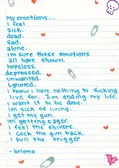 my emotions...
i feel
sick.
dead.
sad.
alone.
im sure these emotions
all have shown.
hopeless.
depressed.
unwanted.
ignored.
i have nothing to fucking
live for. Im ending my life.
i want it to be done.
im sick of living.
i get my gun.
im getting eager.
i feel the shivers.
i cock the gun back,
i pull the trigger
- brieme